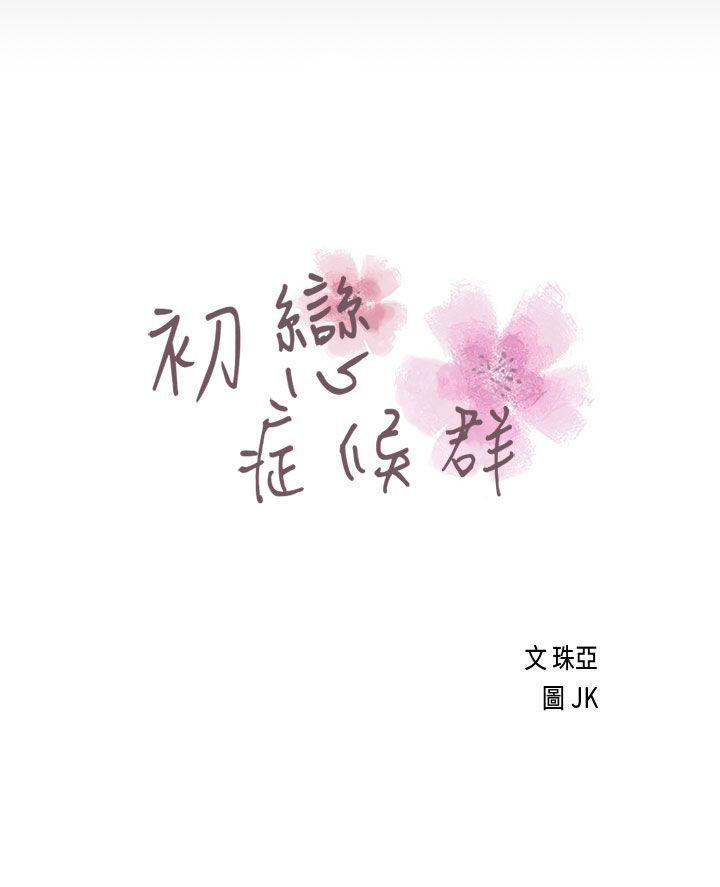 初戀
症候群
文 珠亞
圖 JK